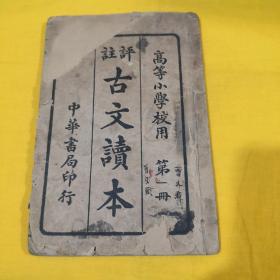 高等小學校用
第一冊
評註
古文讀本
中華書局印行